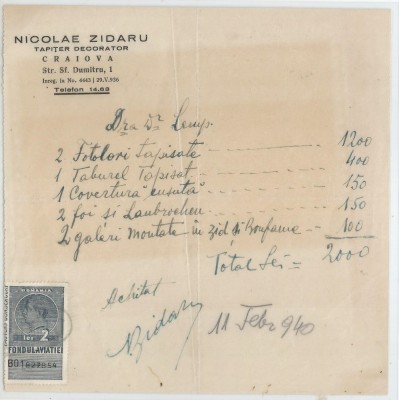 NICOLAE ZIDARU
TAPIȚER DECORATOR
CRAIOVA
Str. Sf. Dumitru, 1
Inreg. la No. 4445 | 29.V.936
Telefon 14.63
Dra Dr Lemp
2 Fotolori tapisate — 1200
1 Taburel Tapisat — 400
1 Covertura "cusută" — 150
2 foi si — 150
2 galeri montate în zid si — 100
Total Lei = 2000
Achitat
NZidaru
11 Febr 940
ROMANIA
LEI 2
FONDUL AVIAȚIEI